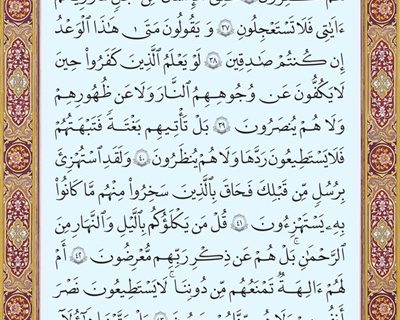 ءَايَٰتِى فَلَا تَسْتَعْجِلُونِ ٣٧ وَيَقُولُونَ مَتَىٰ هَٰذَا ٱلْوَعْدُ
إِن كُنتُمْ صَٰدِقِينَ ٣٨ لَوْ يَعْلَمُ ٱلَّذِينَ كَفَرُوا۟ حِينَ
لَا يَكُفُّونَ عَن وُجُوهِهِمُ ٱلنَّارَ وَلَا عَن ظُهُورِهِمْ
وَلَا هُمْ يُنصَرُونَ ٣٩ بَلْ تَأْتِيهِم بَغْتَةً فَتَبْهَتُهُمْ
فَلَا يَسْتَطِيعُونَ رَدَّهَا وَلَا هُمْ يُنظَرُونَ ٤٠ وَلَقَدِ ٱسْتُهْزِئَ
بِرُسُلٍ مِّن قَبْلِكَ فَحَاقَ بِٱلَّذِينَ سَخِرُوا۟ مِنْهُم مَّا كَانُوا۟
بِهِۦ يَسْتَهْزِءُونَ ٤١ قُلْ مَن يَكْلَؤُكُم بِٱلَّيْلِ وَٱلنَّهَارِ مِنَ
ٱلرَّحْمَٰنِ ۗ بَلْ هُمْ عَن ذِكْرِ رَبِّهِم مُّعْرِضُونَ ٤٢ أَمْ
لَهُمْ ءَالِهَةٌ تَمْنَعُهُم مِّن دُونِنَا ۚ لَا يَسْتَطِيعُونَ نَصْرَ